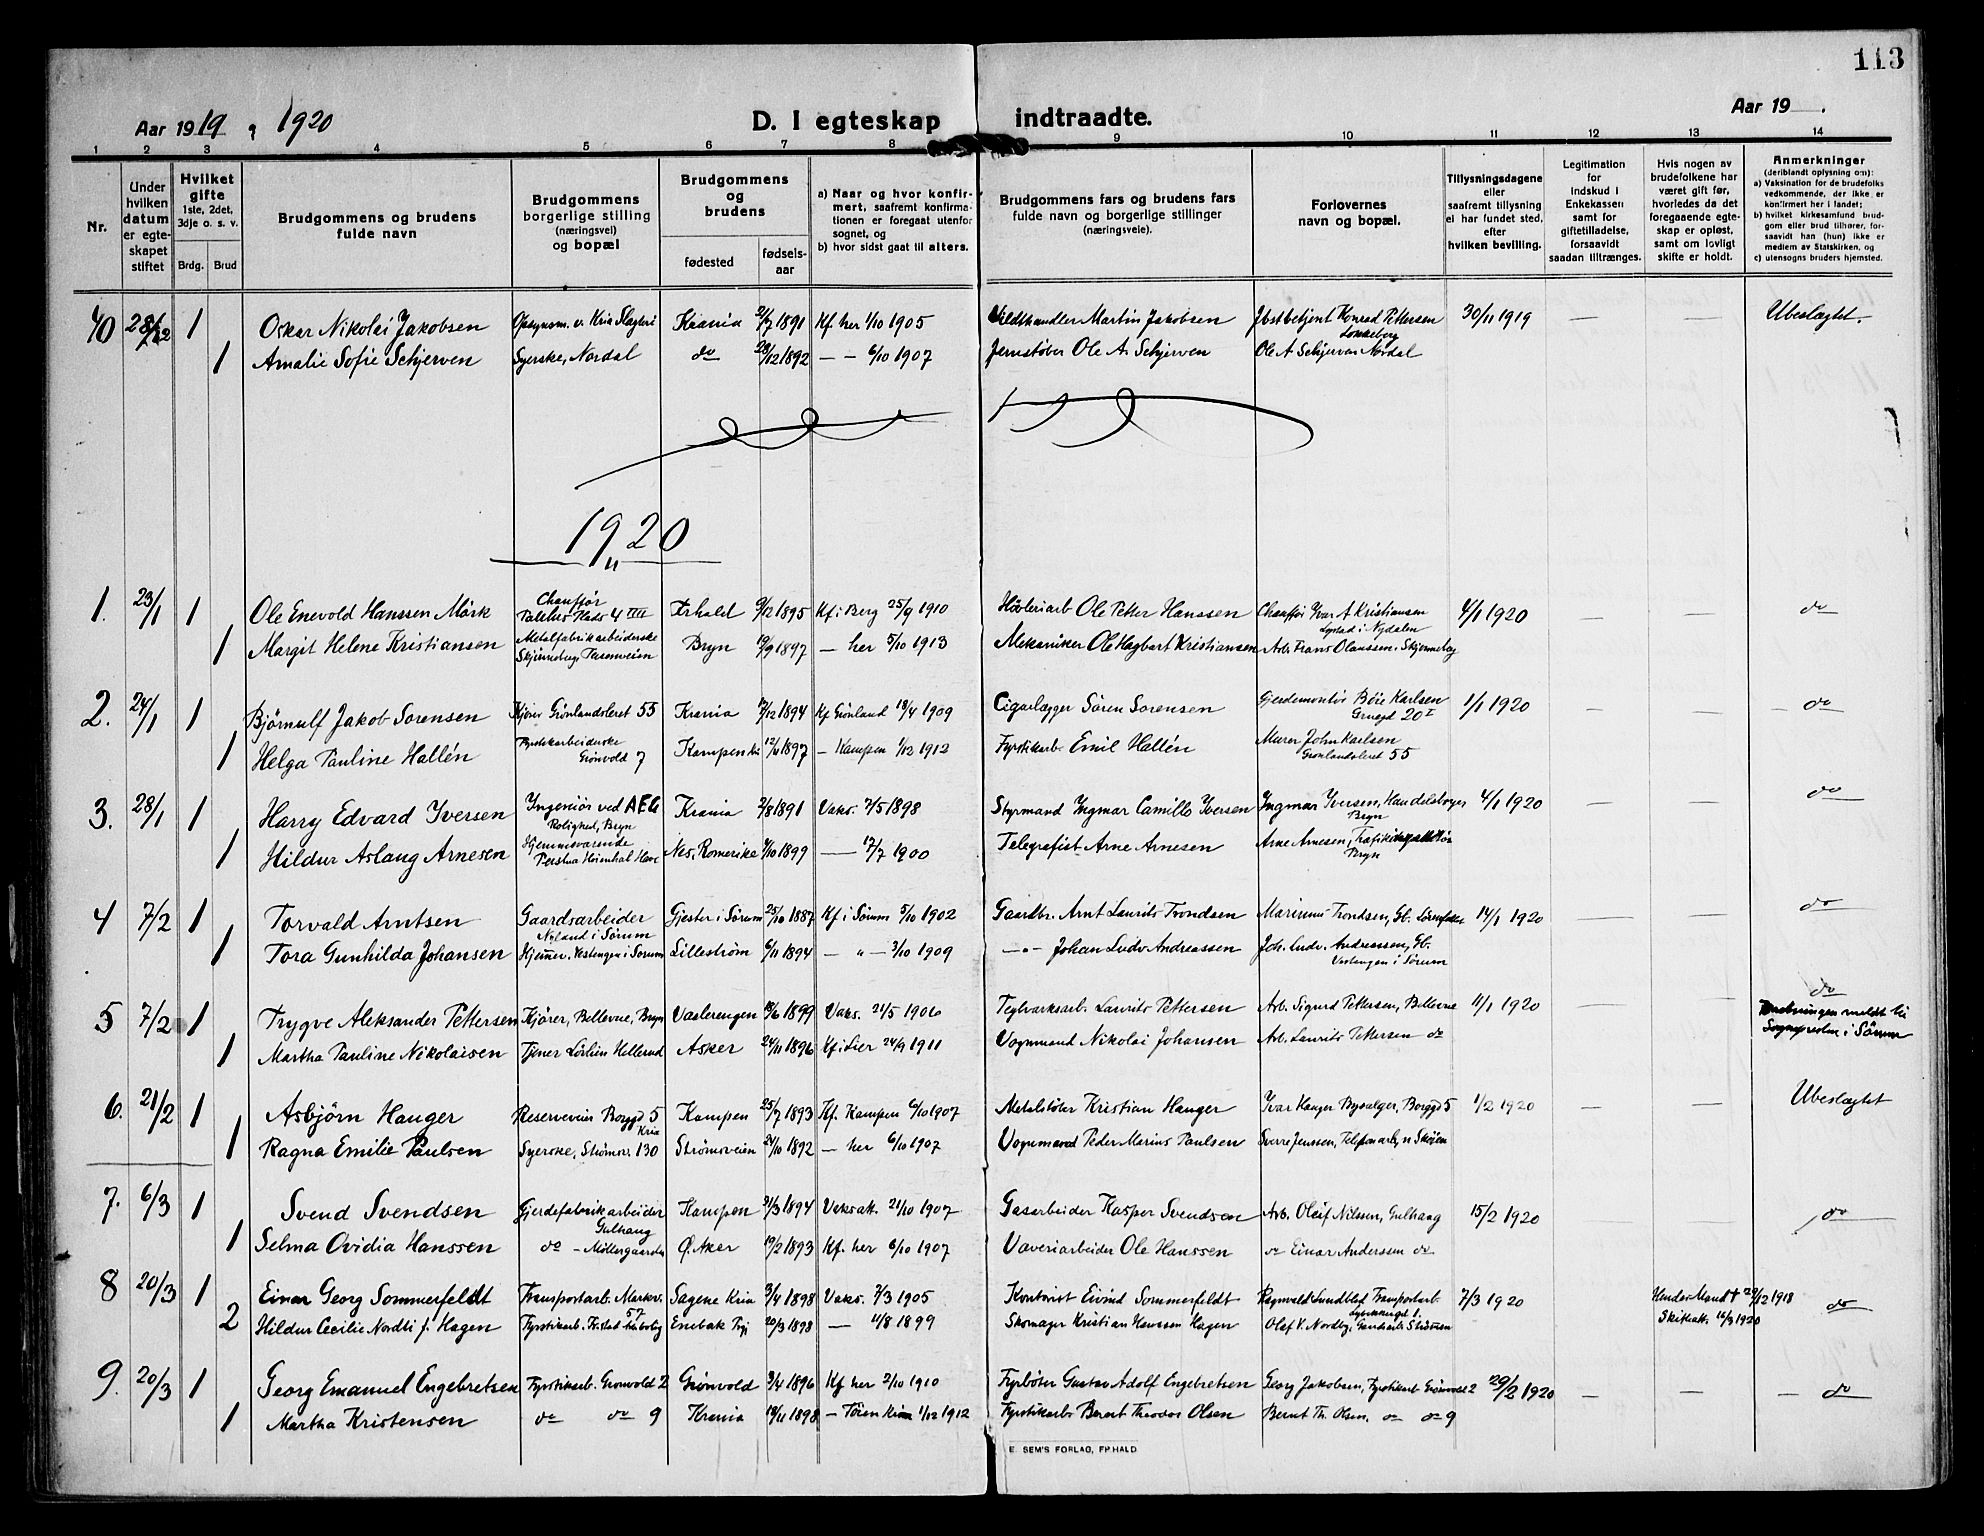 113
Aar 1919 & 1920
D. I egteskap indtraadte.
Aar 19 .
1 2 3 4 5 6 7 8 9 10 11 12 13 14
Nr.
Under hvilken datum er egteskapet stiftet
Hvilket gifte 1ste, 2det, 3dje o. s. v.
Brdg. Brud
Brudgommens og brudens fulde navn
Brudgommens borgerlige stilling (næringsvei) og bopæl
Brudgommens og brudens
fødested
fødselsaar
a) Naar og hvor konfirmert, saafremt konfirmationen er foregaat utenfor sognet, og
b) hvor sidst gaat til alters.
Brudgommens fars og brudens fars fulde navn og borgerlige stillinger (næringsveie).
Forlovernes navn og bopæl.
Tillysningsdagene eller saafremt tillysning ei har fundet sted, efter hvilken bevilling.
Legitimation for indskud i Enkekassen samt for giftetilladelse, forsaavidt saadan tiltrænges.
Hvis nogen av brudefolkene har været gift før, hvorledes da det foregaaende egteskap er opløst, samt om lovligt skifte er holdt.
Anmerkninger (deriblandt oplysning om):
a) Vaksination for de brudefolks vedkommende, der ikke er konfirmert her i landet;
b) hvilket kirkesamfund brudgom eller brud tilhører, forsaavidt han (hun) ikke er medlem av Statskirken, og
c) utensogns bruders hjemsted.
40 28/12 1 Oskar Nikolai Jakobsen Opsynsm. v. Kria Slagteri Krania 2/7 1891 Kf her 1/10 1905 Vildthandler Martin Jakobsen Konrad Pettersen 30/11 1919 Ubeslegtet.
Lønneberg
1 Amalie Sofie Schjerven Syerske, Nordal do 28/12 1892 — — 6/10 1907 Jernstøber Ole A. Schjerven Ole A Schjerven Nordal
1920
1. 23/1 1 Ole Enevold Hanssen Mörk Chauffør 4 IIII Frhald 9/12 1895 Kf i Berg 25/9 1910 Høvleriarb Ole Peter Hanssen Chauffør Ivar A Kristiansen 4/1 1920 — — do
i Nydalen
1 Margit Helene Kristiansen Metalfabrikarbeiderske Bryn 19/9 1897 — her 5/10 1913 Mekaniker Ole Hagbart Kristiansen Arb. Frans Olaussen, Skjønneberg
2. 24/1 1 Bjørnulf Jakob Sorensen Kjører Grønlandsleret 55 Krania 17/12 1894 Kf Grönland 18/4 1909 Cigarlægger Sören Sorensen Gjerdemontör Böie Karlsen 1/1 1920 — — do
20 I
1 Helga Pauline Hallén Fyrstikarbeiderske Grönvold 7 Kampen 12/6 1897 — Kampen 1/12 1912 Fyrstikarb. Emil Hallén Murer John Karlsen
Grönlandsleret 55
3. 28/1 1 Harry Edvard Iversen Ingeniör ved AEG Rolighed, Bryn Krania 2/8 1891 Vaks. 7/5 1898 Styrmand Ingmar Camillo Iversen Ingmar Iversen, Handelsborger Bryn 4/1 1920 — — do
1 Hildur Aslaug Arnesen Hjemmeværende Nes, Romerike 1/10 1899 — 17/7 1900 Telegrafist Arne Arnesen Arne Arnesen, Bryn
4 7/2 1 Torvald Arntsen Gaardsarbeider Nyland i Sörum Gjester i Sörum 25/10 1887 Kf i Sörum 5/10 1902 Gaardbr. Arnt Laurits Trondsen Marinius Trondsen, Gb. 14/1 1920 — — do
1 Tora Gunhilda Johansen Hjemmev. Vestengen i Sorum Lilleström 6/11 1894 — " — 3/10 1909 — " — Johan Ludv Andreassen Joh. Ludv. Andreassen, Gb.
Vestengen i Sörum
5 7/2 1 Trygve Aleksander Pettersen Kjörer, Bellevue, Bryn Vaalerengen 18/6 1899 Vaks. 21/5 1906 Teglverksarb. Laurits Pettersen Arb. Sigurd Pettersen, Bellevue 11/1 1920 — — do
meldt til
Sognepresten i Sörum
1 Martha Pauline Nikolaisen Tjener Hellerud Asker 24/11 1896 Kf i Lier 24/9 1911 Vognmand Nikolai Johansen Arb. Laurits Pettersen do
6. 21/2 1 Asbjörn Hauger Reserveveier Borggd 5 Kria Kampen 25/7 1893 Kf. Kampen 6/10 1907 Metalstöber Kristian Hauger Ivar Hauger Bysælger, Borggd 5 1/2 1920 — — Ubeslegtet
1 Ragna Emilie Paulsen Syerske, Strömsv. 130 Strömsveien 24/10 1892 — her 6/10 1907 Vognmand Peder Marius Paulsen Sverre Jenssen, Telefonarb, n Sköjen
7. 6/3 1 Svend Svendsen Gjerdefabrikarbeider Gulhaug Kampen 21/3 1894 Vaksat. 21/10 1907 Gasarbeider Kasper Svendsen Arb. Oleif Nilssen, Gulhaug 15/2 1920 do
1 Selma Ovidia Hanssen do - Möllergaarden Ø. Aker 19/2 1893 Kf. her 6/10 1907 Væveriarbeider Ole Hanssen do Einar Anderssen do
8 20/3 1 Einar Georg Sommerfeldt Transportarb. Markv. 57 Sagene Kria 3/4 1898 Vaks. 7/3 1905 Kontorist Eivind Sommerfeldt Ragnvald Lundblad Transportarb. 7/3 1920 Hendes Mand † 27/12 1918 do
Skifteatt. 16/3 1920
2 Hildur Cecilie Nordli f. Hagen Fyrstikarb. Enebak 20/3 1898 — 11/8 1899 Skomager Kristian Hanssen Hagen Olaf V. Nordby, Strömmen
9. 20/3 1 Georg Emanuel Engebretsen Fyrstikarb. Gronvold 2 Grönvold 3/4 1896 Kf her 2/10 1910 Fyrböter Gustav Adolf Engebretsen Georg Jakobsen, Fyrstikarb Grönvold 2 29/2 1920 — — do
1 Martha Kristensen do do 9 Krania 19/11 1898 — Töien 1/12 1912 Fyrstikarb. Bernt Theodor Olsen Bernt Th. Olsen, do do 9
E. SEM'S FORLAG, FR.HALD